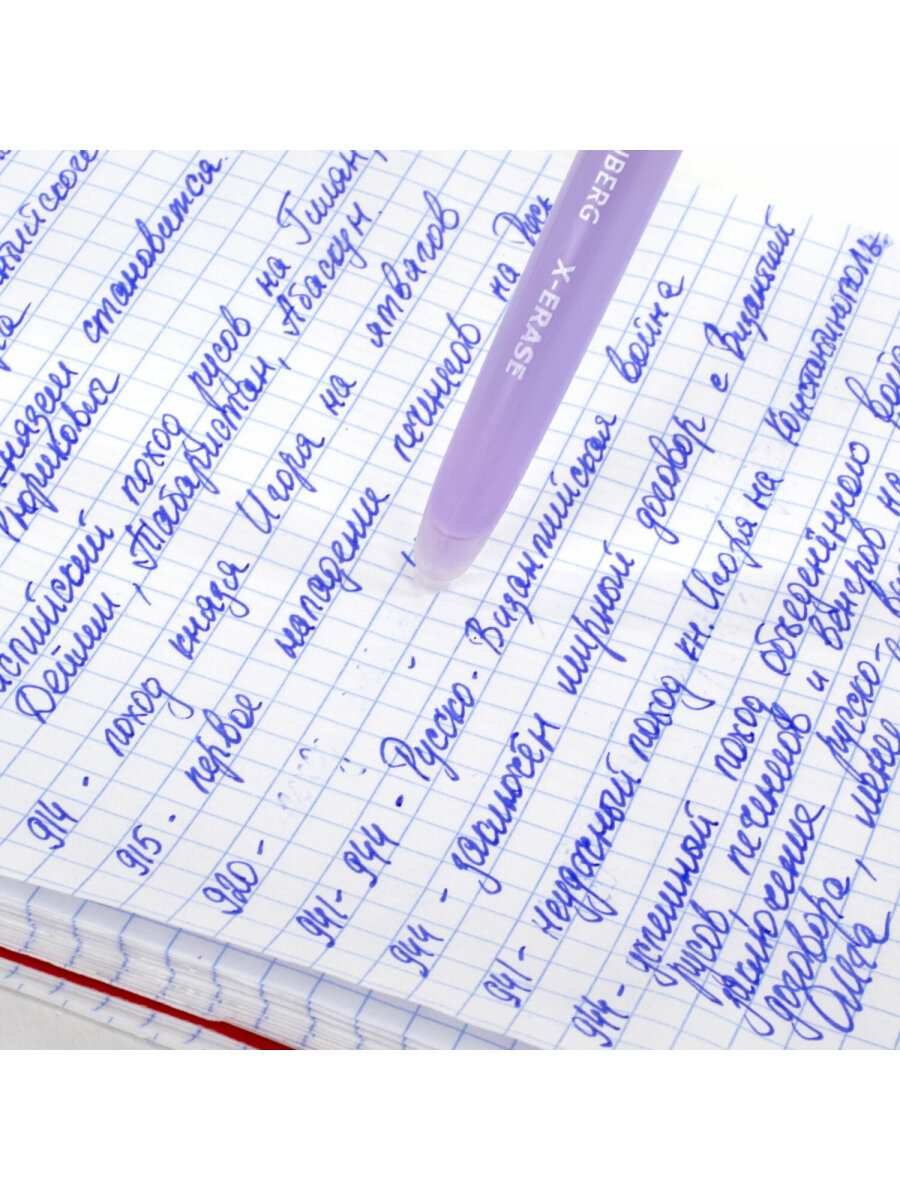 князем становится
Рюрикович
Каспийский поход русов на Гилян,
Дейлем, Табаристан, Абаскун.
914 - поход князя Игоря на ятвягов
915 - первое нападение печенегов на Русь
920 -
941 - 944 - Русско - Византийская война
944 - заключён мирный договор с Византией
941 - неудачный поход кн. Игоря на Константинополь
944 - успешный поход объеденённого
русов, печенегов и венгров на
заключение русско-
договора, менее
NBERG X-ERASE